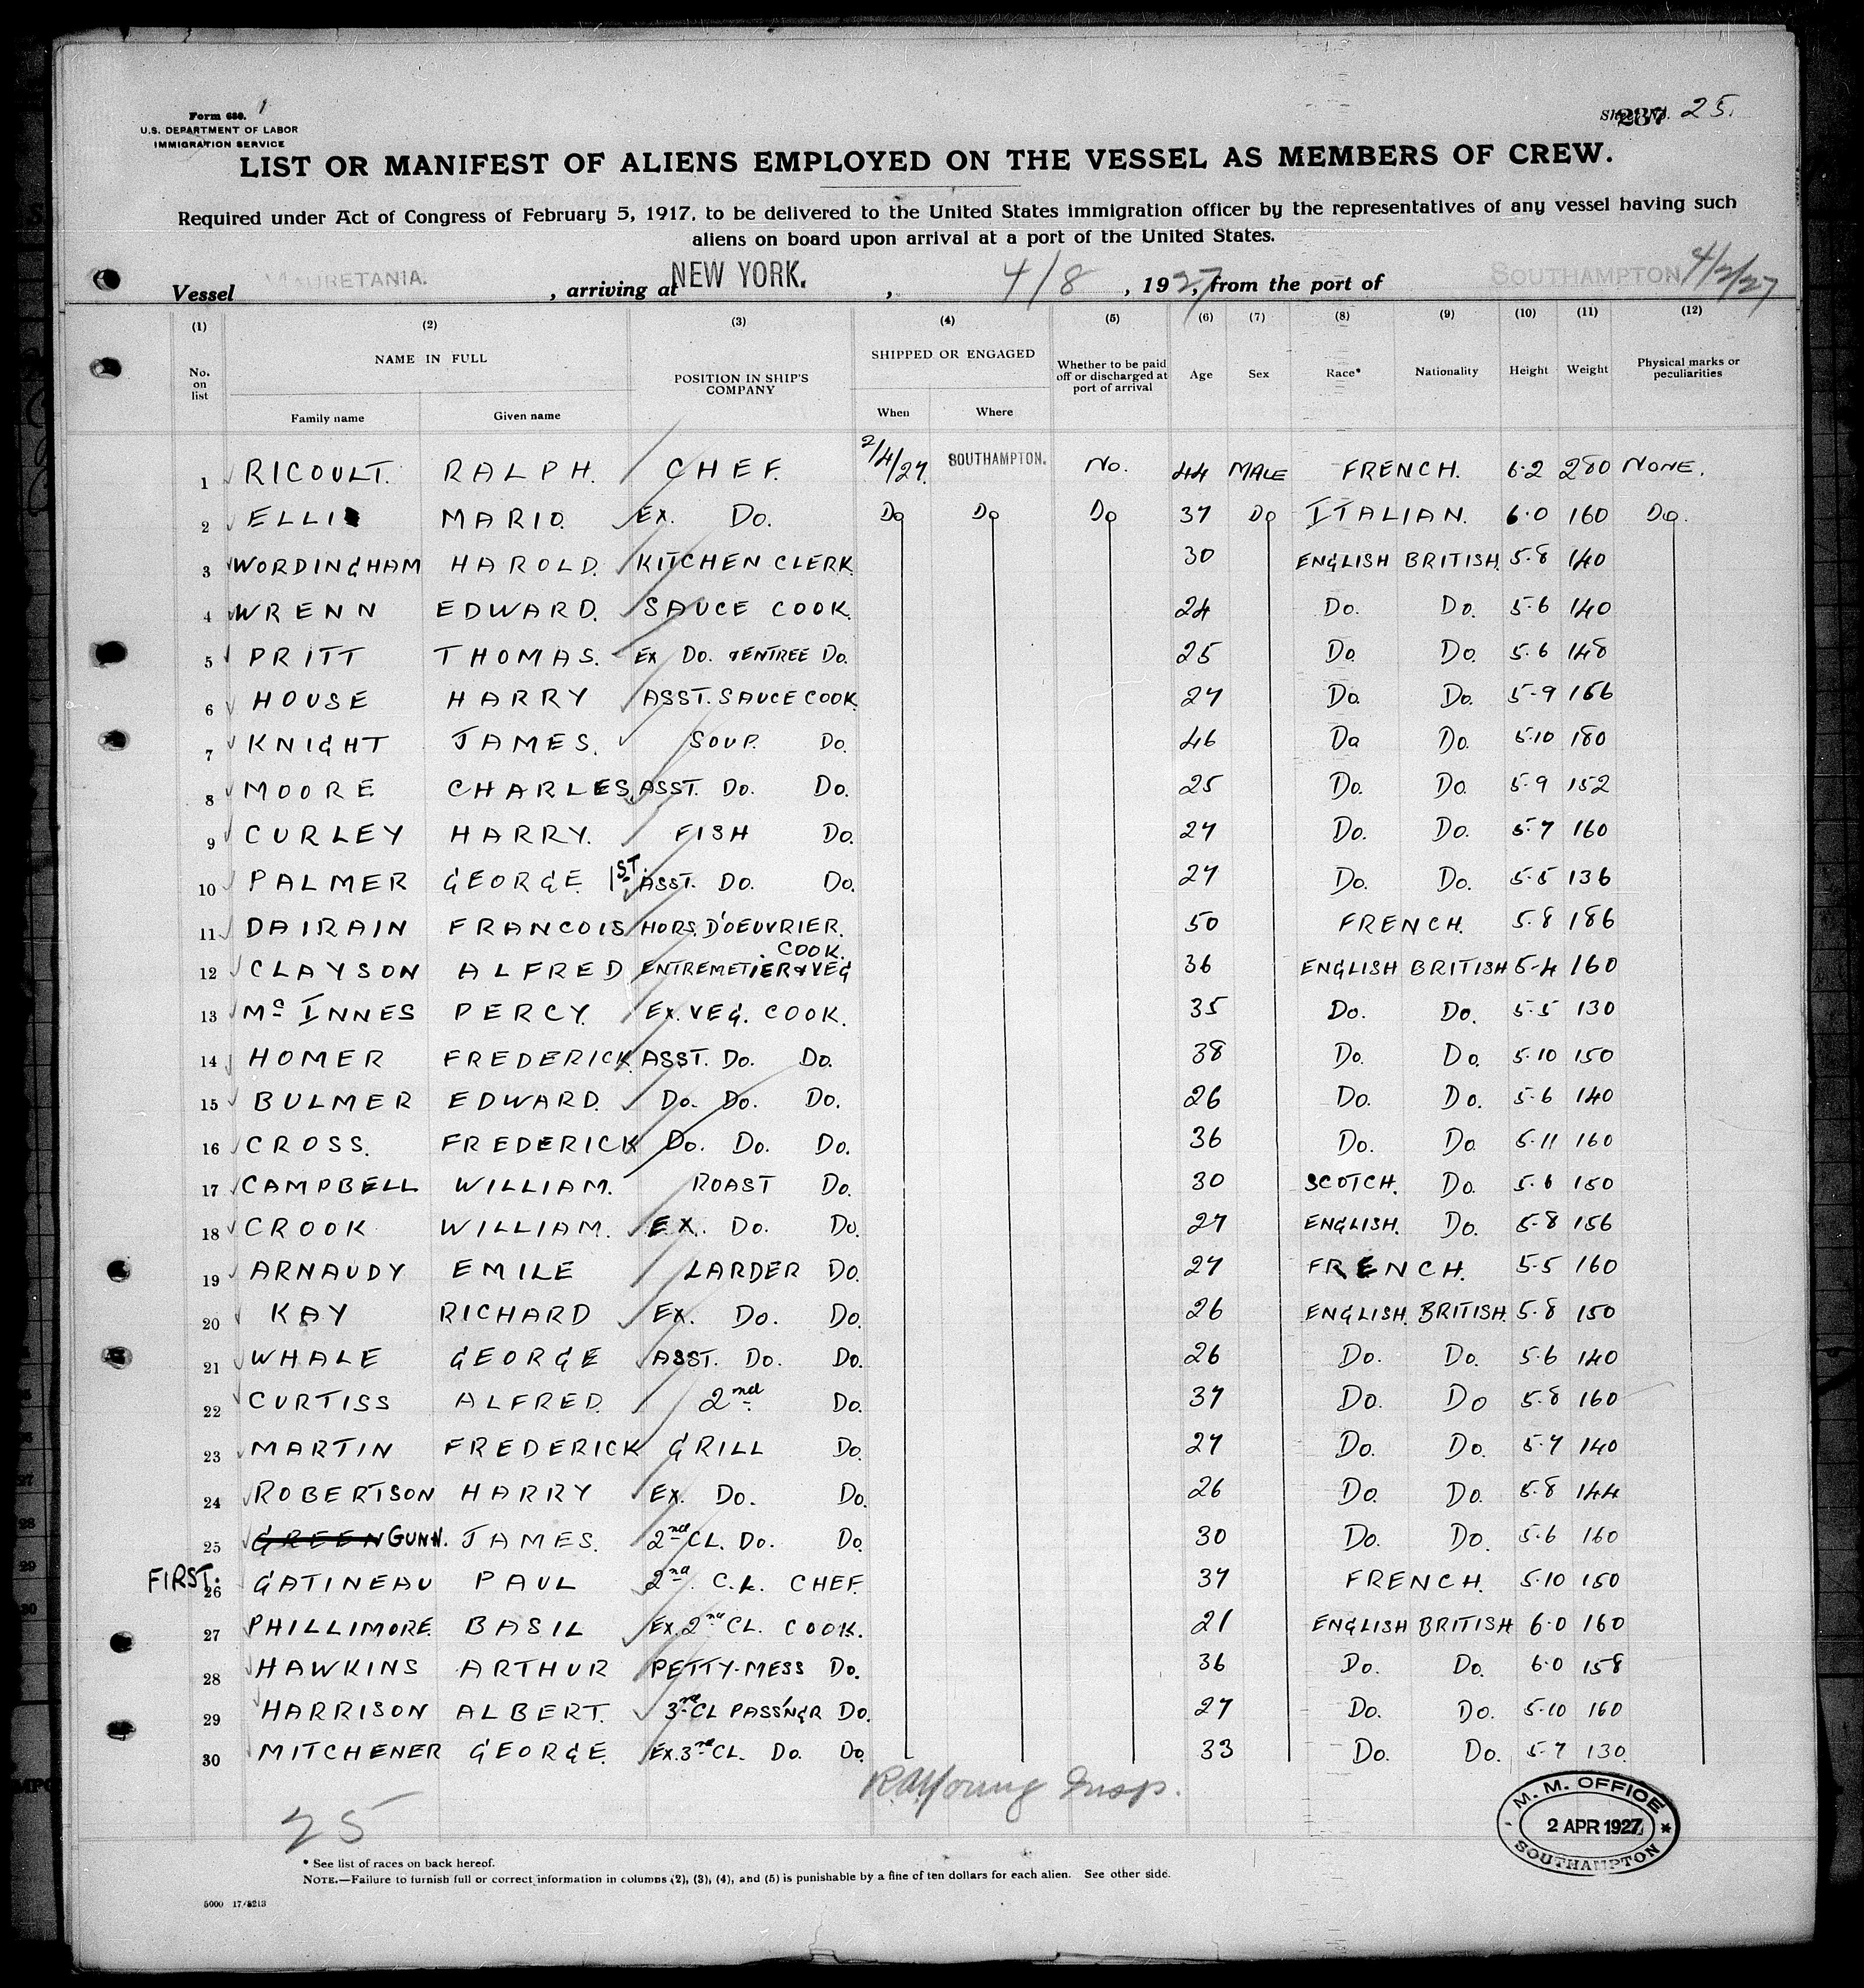 Form 680. 1
U.S. DEPARTMENT OF LABOR
IMMIGRATION SERVICE
287 25.
LIST OR MANIFEST OF ALIENS EMPLOYED ON THE VESSEL AS MEMBERS OF CREW.
Required under Act of Congress of February 5, 1917, to be delivered to the United States immigration officer by the representatives of any vessel having such
aliens on board upon arrival at a port of the United States.
Vessel MAURETANIA. , arriving at NEW YORK. , 4/8 , 1927, from the port of SOUTHAMPTON 4/2/27
(1) (2) (3) (4) (5) (6) (7) (8) (9) (10) (11) (12)
No. on list NAME IN FULL Family name Given name POSITION IN SHIP'S COMPANY SHIPPED OR ENGAGED When Where Whether to be paid off or discharged at port of arrival Age Sex Race* Nationality Height Weight Physical marks or peculiarities
1 RICOULT. RALPH. CHEF. 2/4/27. SOUTHAMPTON. No. 44 MALE FRENCH. 6·2 280 NONE.
2 ELLI MARIO. Ex. Do. Do Do Do 37 Do ITALIAN. 6·0 160 Do.
3 WORDINGHAM HAROLD. KITCHEN CLERK. 30 ENGLISH BRITISH. 5·8 140
4 WRENN EDWARD. SAUCE COOK. 24 Do. Do. 5·6 140
5 PRITT THOMAS. Ex Do. & ENTREE Do. 25 Do Do. 5·6 148
6 HOUSE HARRY ASST. SAUCE COOK. 27 Do. Do. 5-9 166
7 KNIGHT JAMES. SOUP. Do. 46 Do Do. 5·10 180
8 MOORE CHARLES. ASST. Do. Do. 25 Do. Do. 5·9 152
9 CURLEY HARRY. FISH Do. 27 Do. Do. 5·7 160
10 PALMER GEORGE. 1ST. ASST. Do. Do. 27 Do. Do. 5·5 136
11 DAIRAIN FRANCOIS HORS. D'OEUVRIER. 50 FRENCH. 5·8 186
12 CLAYSON ALFRED ENTREMETIER & VEG COOK. 36 ENGLISH BRITISH 5-4 160
13 Mc INNES PERCY. Ex. VEG. COOK. 35 Do. Do. 5·5 130
14 HOMER FREDERICK. ASST. Do. Do. 38 Do. Do. 5·10 150
15 BULMER EDWARD. Do. Do. Do. 26 Do. Do. 5·6 140
16 CROSS. FREDERICK Do. Do. Do. 36 Do. Do. 5·11 160
17 CAMPBELL WILLIAM. ROAST Do. 30 SCOTCH. Do. 5·6 150
18 CROOK WILLIAM. EX. Do. Do. 27 ENGLISH. Do. 5-8 156
19 ARNAUDY EMILE LARDER Do. 27 FRENCH. 5·5 160
20 KAY RICHARD Ex. Do. Do. 26 ENGLISH. BRITISH. 5·8 150
21 WHALE GEORGE ASST. Do. Do. 26 Do. Do. 5·6 140
22 CURTISS ALFRED. 2nd Do. 37 Do. Do 5·8 160
23 MARTIN FREDERICK GRILL Do. 27 Do. Do. 5·7 140
24 ROBERTSON HARRY Ex. Do. Do. 26 Do. Do. 5·8 144
25 GREEN GUNN. JAMES. 2nd CL. Do. Do. 30 Do. Do. 5·6 160
FIRST. 26 GATINEAU PAUL 2nd. CL. CHEF. 37 FRENCH. 5·10 150
27 PHILLIMORE. BASIL Ex. 2nd CL. COOK. 21 ENGLISH BRITISH 6·0 160
28 HAWKINS ARTHUR PETTY-MESS Do. 36 Do. Do. 6·0 158
29 HARRISON ALBERT. 3rd CL PASS'NGR Do. 27 Do. Do. 5·10 160
30 MITCHENER GEORGE. Ex. 3rd CL. Do. Do. 33 Do. Do. 5·7 130.
Young Insp.
25
M. M. OFFICE
2 APR 1927
SOUTHAMPTON
* See list of races on back hereof.
NOTE.—Failure to furnish full or correct information in columns (2), (3), (4), and (5) is punishable by a fine of ten dollars for each alien. See other side.